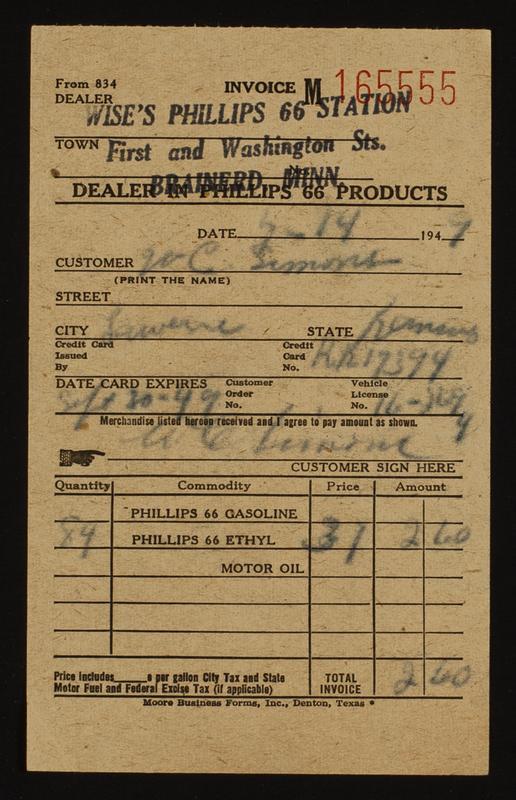 From 834
INVOICE M 165555
DEALER
WISE'S PHILLIPS 66 STATION
TOWN First and Washington Sts.
BRAINERD MINN.
DEALER IN PHILLIPS 66 PRODUCTS
DATE 14 1949
CUSTOMER W C Simons
(PRINT THE NAME)
STREET
CITY Laverne STATE
Credit Card Issued By
Credit Card No. 17394
DATE CARD EXPIRES 30-49
Customer Order No.
Vehicle License No.
Merchandise listed hereon received and I agree to pay amount as shown.
W C
CUSTOMER SIGN HERE
Quantity Commodity Price Amount
PHILLIPS 66 GASOLINE
84 PHILLIPS 66 ETHYL 31 2 60
MOTOR OIL
Price Includes______¢ per gallon City Tax and State
Motor Fuel and Federal Excise Tax (if applicable)
TOTAL INVOICE 2 60
Moore Business Forms, Inc., Denton, Texas